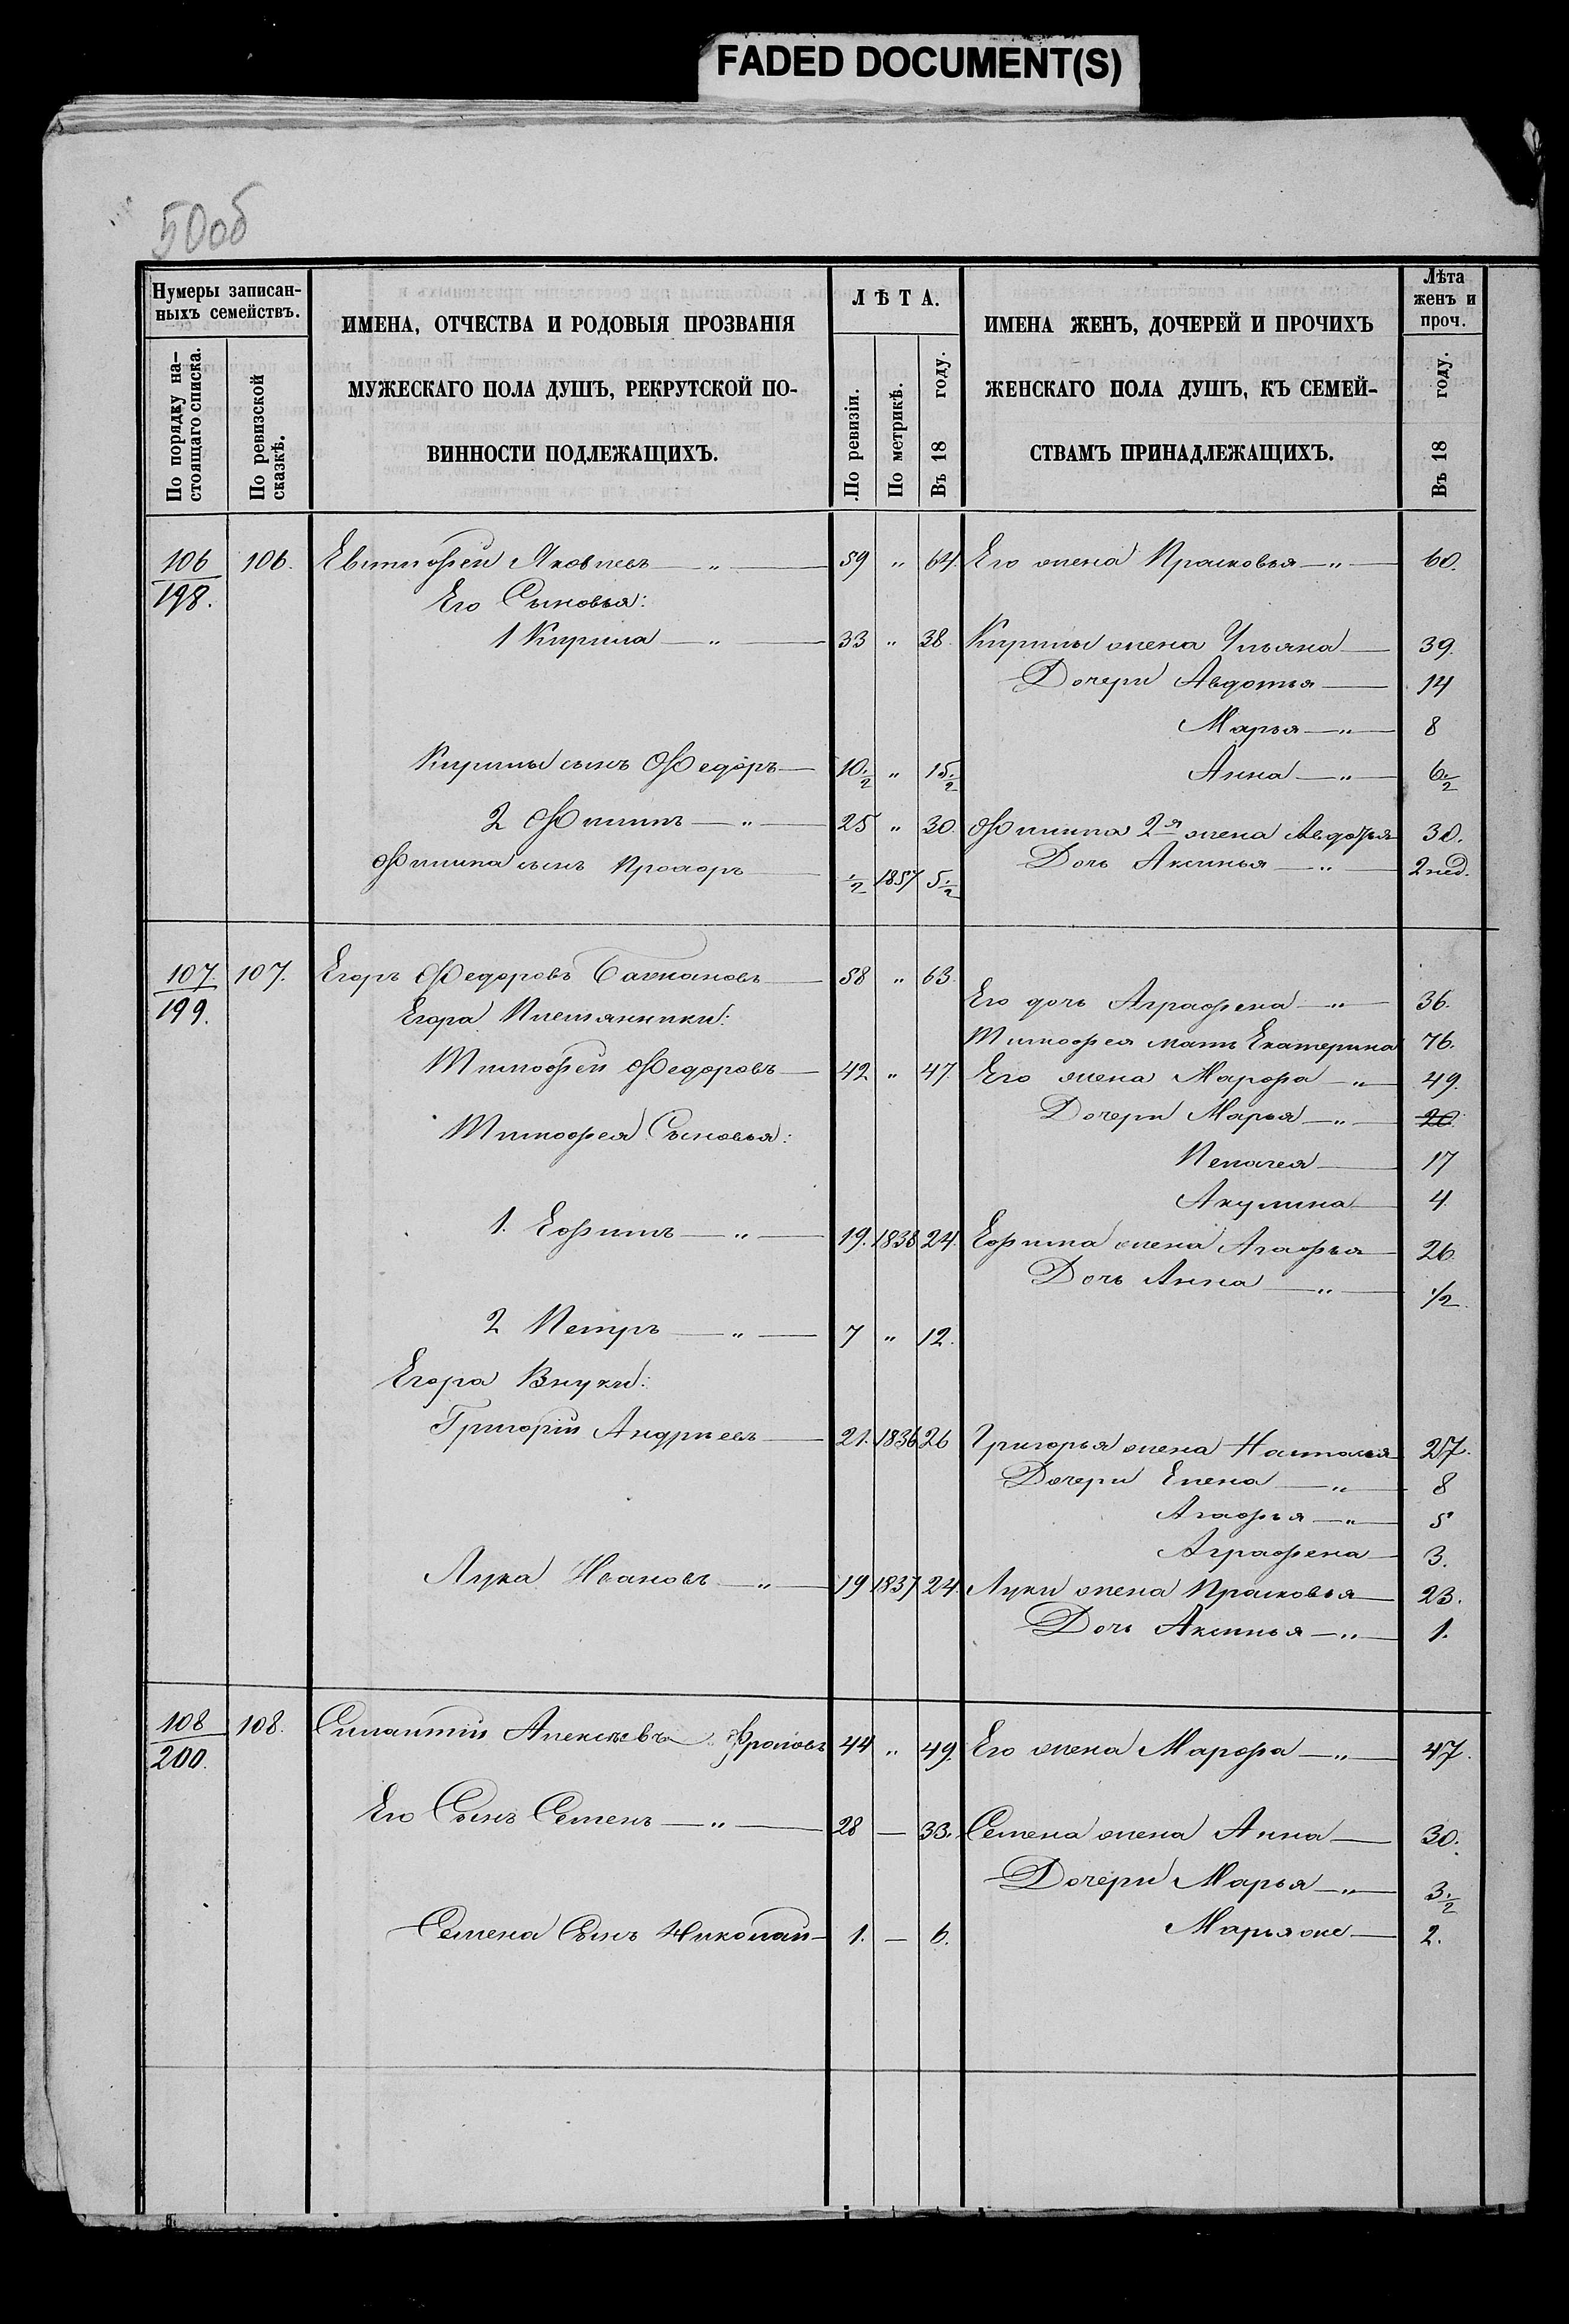 FADED DOCUMENT(S)
50об
Нумеры записан-
ныхъ семействъ.
По порядку на-
стоящаго списка.
По ревизской
сказкѣ.
ИМЕНА, ОТЧЕСТВА И РОДОВЫЯ ПРОЗВАНІЯ
МУЖЕСКАГО ПОЛА ДУШЪ, РЕКРУТСКОЙ ПО-
ВИННОСТИ ПОДЛЕЖАЩИХЪ.
ЛѢТА.
По ревизіи.
По метрикѣ.
Въ 18 году.
ИМЕНА ЖЕНЪ, ДОЧЕРЕЙ И ПРОЧИХЪ
ЖЕНСКАГО ПОЛА ДУШЪ, КЪ СЕМЕЙ-
СТВАМЪ ПРИНАДЛЕЖАЩИХЪ.
Лѣта
женъ и
проч.
Въ 18 году.
106 106. Евтифѣй Яковлевъ — „ — 59 „ 64. Его жена Прасковья — „ — 60.
198. Его Сыновья:
1 Кирила — „ — 33 „ 38. Кирилы жена Ульяна — 39.
Дочери Авдотья — 14
Марья — „ — 8
Кирилы сынъ Федоръ — 10 1/2 „ 15 1/2 Анна — „ — 6 1/2
2 Филипъ — „ — 25 „ 30. Филипа 2я жена Авдотья 30.
Филипа сынъ Прохоръ — 1/2 1857 5 1/2 Дочь Аксинья — „ — 2 нед.
107. 107. Егоръ Федоровъ — 58 „ 63.
199. Егора Племянники: Его дочь Аграфена — „ — 36.
Тимофея мать Екатерина 76.
Тимофѣй Федоровъ — 42 „ 47. Его жена Марфа — „ — 49.
Тимофея Сыновья: Дочери Марья — „ — 20.
Пелагея — 17
Акулина — 4.
1. Ефимъ — „ — 19. 1838 24. Ефима жена Агафья 26
Дочь Анна — „ — 1/2.
2 Петръ — „ — 7 „ 12.
Егора Внуки:
Григорій Андреевъ — 21. 1836 26 Григорья жена Наталья 27.
Дочери Елена — „ — 8
Агафья — „ — 5
Аграфена — 3.
Лука Ивановъ — „ — 19 1837 24. Луки жена Прасковья — 23.
Дочь Аксинья — „ — 1.
108 108. Силантій Алексѣевъ Фроловъ 44 „ 49. Его жена Марфа — „ — 47.
200.
Его Сынъ Семенъ — „ — 28 — 33. Семена жена Анна — 30.
Дочери Марья — „ — 3 1/2
Семена Сынъ Николай — 1. — 6. Марья же — 2.